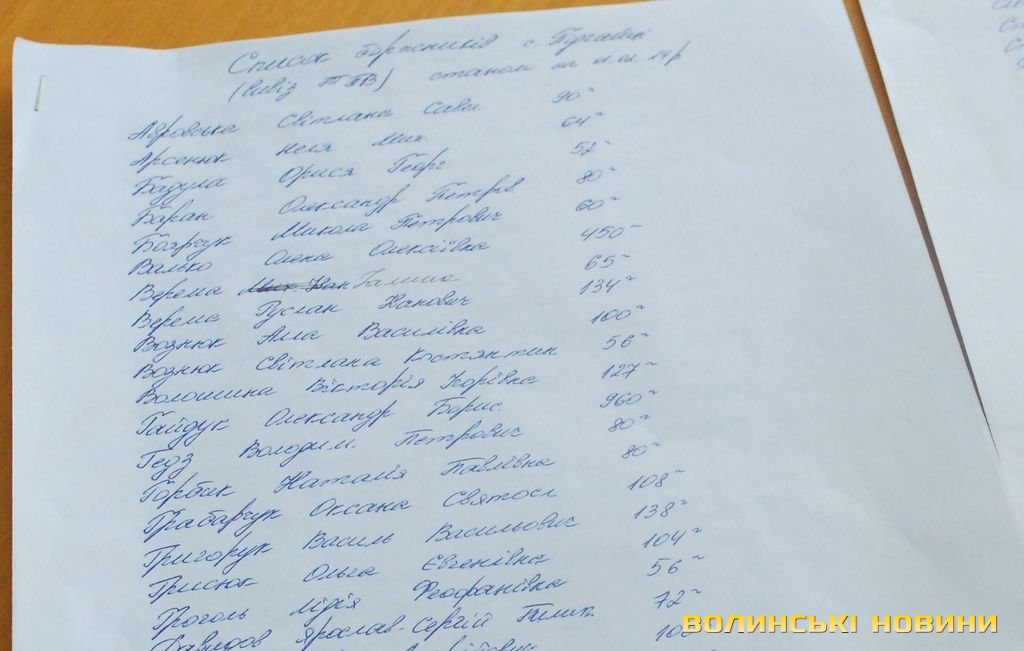 Список боржників с. Підгайці
(вивіз ТПВ) станом на 01.01.14р
Адровська Світлана Сави 90=
Арсенюк Неля Мих. 64=
Бадула Орися Георг 52=
Баран Олександр Петров 80=
Боярчук Микола Петрович 60=
Валько Олена Олексіївна 450=
Верема Галина 65=
Верема Руслан Іванович 134=
Вознюк Алла Василівна 100=
Вознюк Світлана Костянтин 56=
Волошина Вікторія Ігорівна 127=
Гайдук Олександр Борис 960=
Гедз Володим. Петрович 80=
Горбик Наталія Павлівна 80=
Грабарчук Оксана Святосл 108=
Григорук Василь Васильович 138=
Грисюк Ольга Євгенівна 104=
Гроголь Лідія Феофанівна 56=
Давидов Ярослав-Сергій 72=
ВОЛИНСЬКІ НОВИНИ